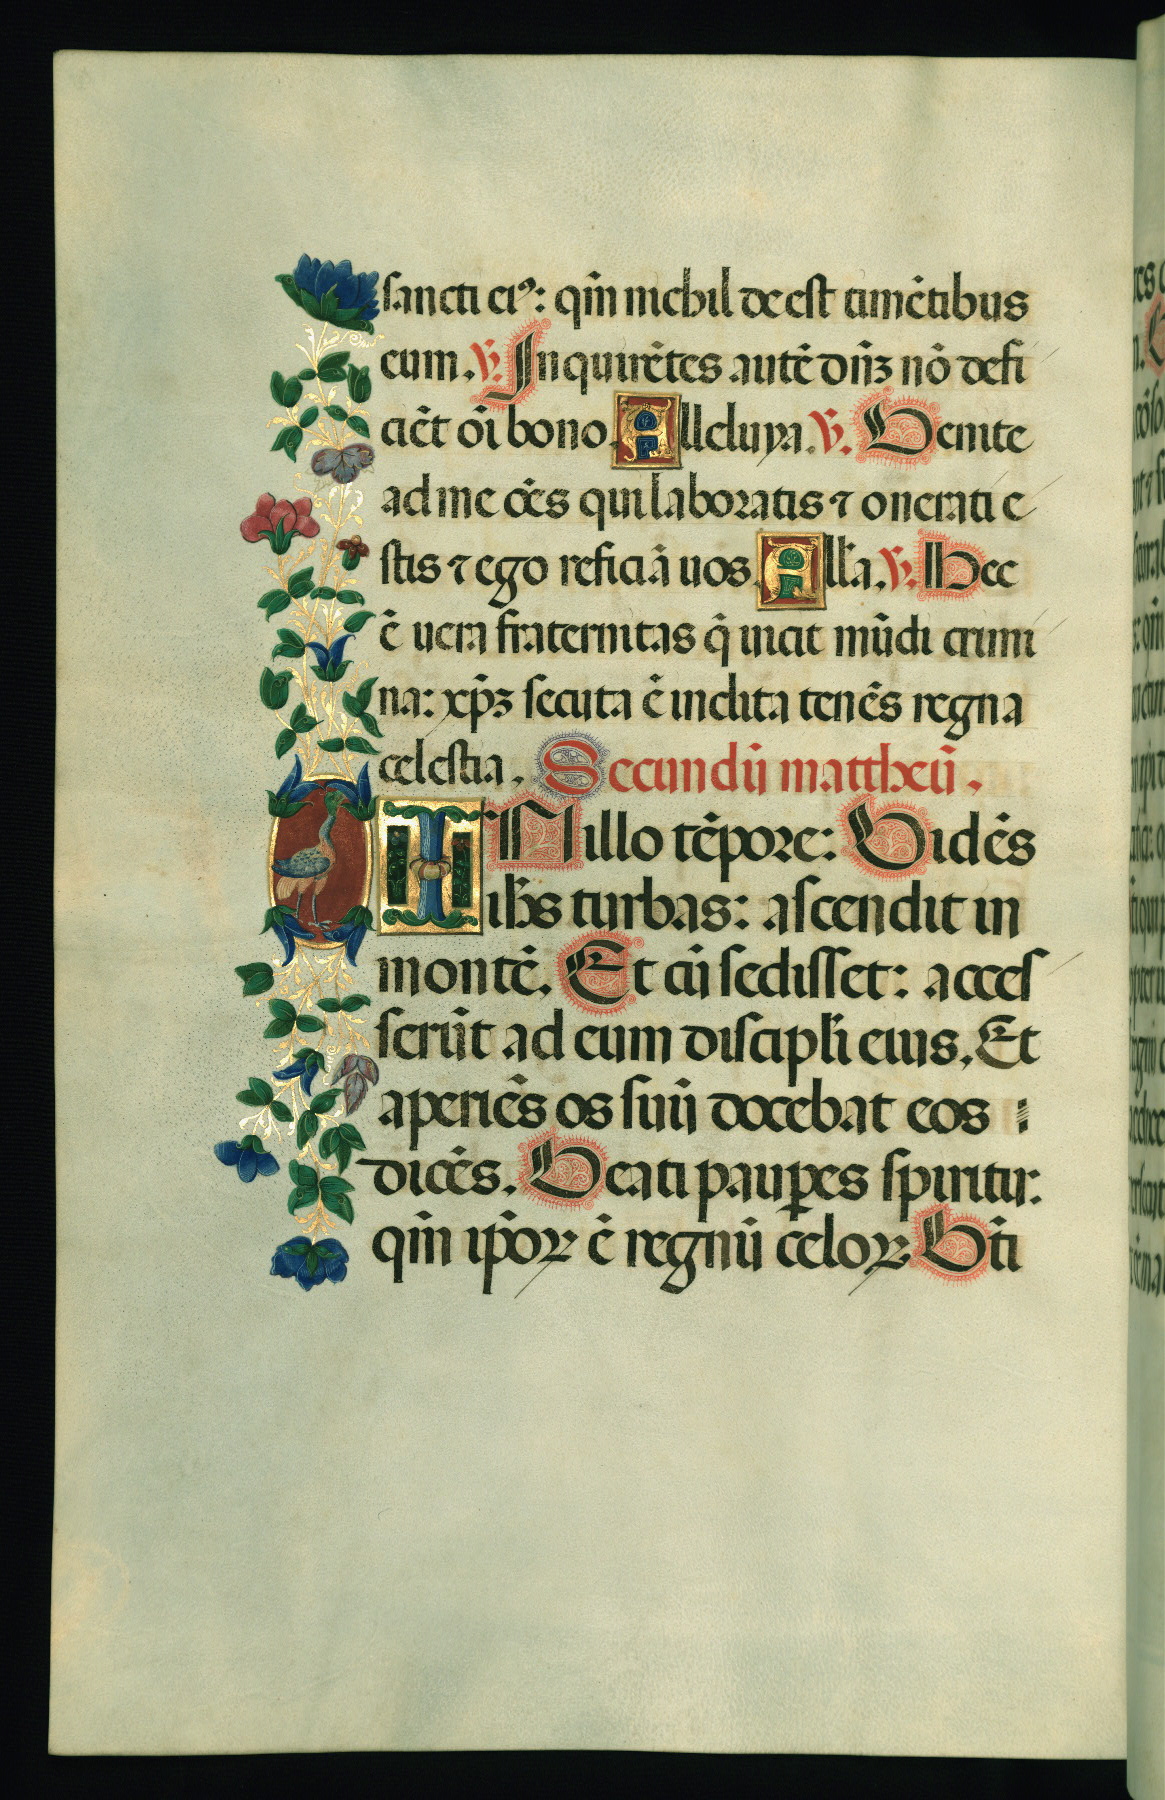 sancti ei⁹: qm̄ nichil deest timētibus
eum. ℣. Inquirētes autē dn̄ꝫ nō defi
ciēt oī bono. Alleluya. ℣. Venite
ad me oēs qui laboratis ⁊ onerati e
stis ⁊ ego reficiā uos. All'a. ℣. Hec
ē uera fraternitas q̄ uicit mūdi crimi
na: xp̄ꝫ secuta ē indita tenēs regna
celestia. Secundū mattheū.
IN illo tēpore: Vidēs
ihs̄ turbas: ascendit in
montē. Et cū sedisset: acces
serūt ad eum discipl'i eius. Et
aperiēs os suū docebat eos
dicēs. Beati pauꝑes spiritu:
qm̄ ip̄oꝝ ē regnū celoꝝ. Bt̄i